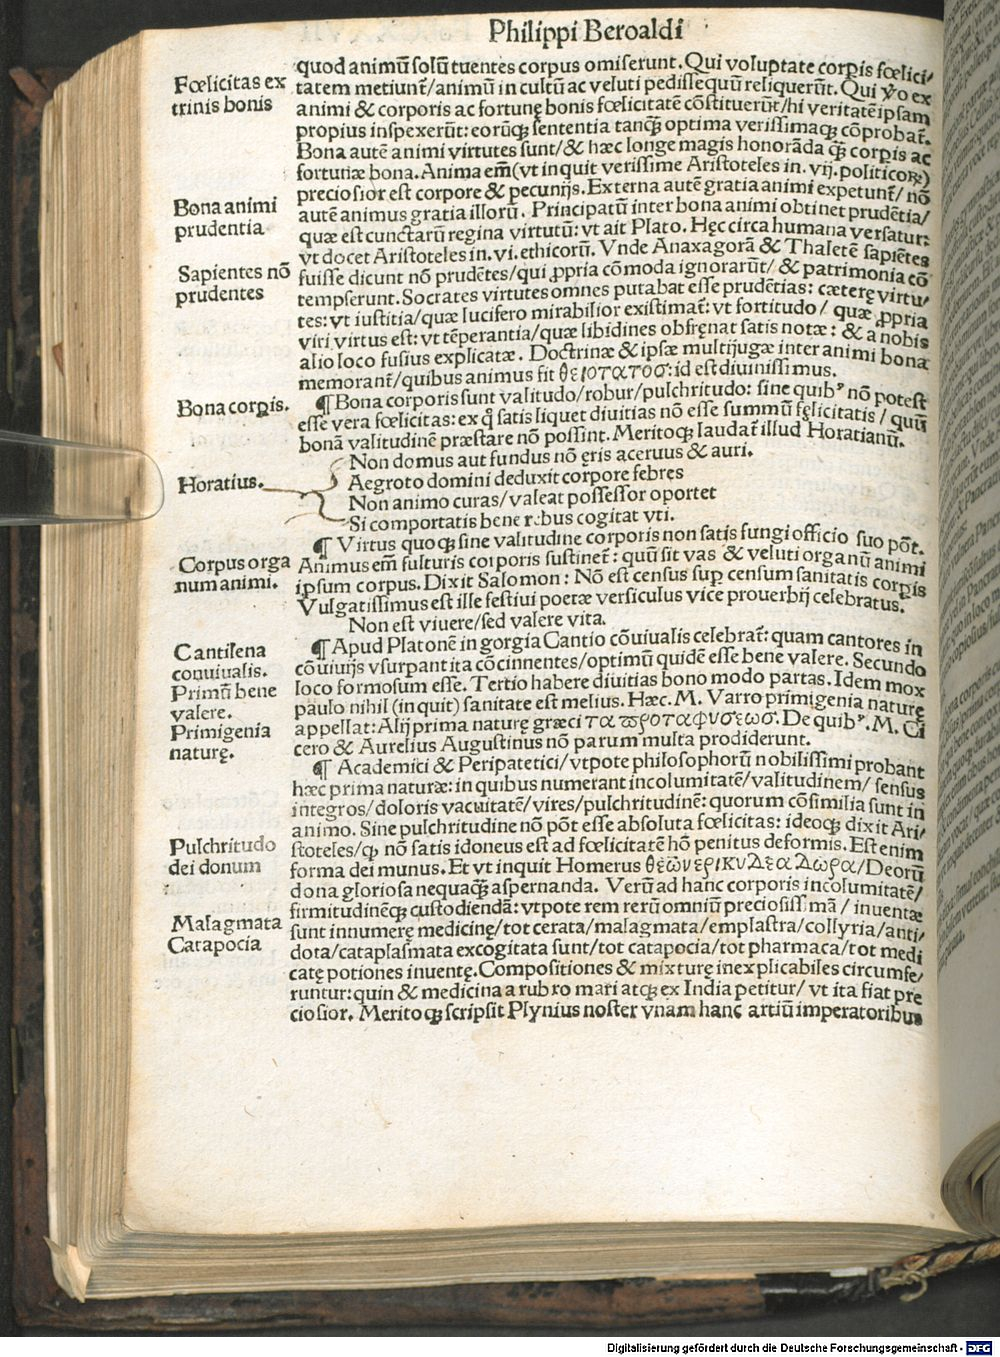 Philippi Beroaldi
quod animū solū tuentes corpus omiserunt. Qui voluptate corꝑis fœlici/
tatem metiunt᷑/animū in cultū ac veluti pedissequū reliquerūt. Qui v̊o ex
animi & corporis ac fortunę bonis fœlicitatē cōstituerūt/hi veritatē ipsam
propius inspexerūt: eorūqꝫ sententia tanqꝫ̄ optima verissimaqꝫ cōprobat᷑.
Bona autē animi virtutes sunt/& hæc longe magis honorāda qꝫ̄ corꝑis ac
fortunæ bona. Anima em̄(vt inquit verissime Aristoteles in. vij. politicoꝝ)
preciosior est corpore & pecunijs. Externa autē gratia animi expetunt᷑/ nō
autē animus gratia illorū. Principatū inter bona animi obtinet prudētia/
quæ est cunctarū regina virtutū: vt ait Plato. Hęc circa humana versatur:
vt docet Aristoteles in. vi. ethicorū. Vnde Anaxagorā & Thaletē sapiētes
fuisse dicunt nō prudētes/qui ꝓpria cōmoda ignorarūt/ & patrimonia cō
tempserunt. Socrates virtutes omnes putabat esse prudētias: cæterę virtu/
tes: vt iustitia/quæ lucifero mirabilior existimat᷑: vt fortitudo/ quæ ꝓpria
viri virtus est: vt tēperantia/quæ libidines obfręnat satis notæ: & a nobis
alio loco fusius explicatæ. Doctrinæ & ipsæ multijugæ inter animi bona
memorant᷑/quibus animus fit θειοτατοσ: id est diuinissimus.
¶ Bona corporis sunt valitudo/robur/pulchritudo: sine quibꝰ nō potest
esse vera fœlicitas: ex q̄ satis liquet diuitias nō esse summū fęlicitatis/ quū
bonā valitudinē præstare nō possint. Meritoqꝫ laudat᷑ illud Horatianū.
Non domus aut fundus nō ęris aceruus & auri.
Aegroto domini deduxit corpore febres
Non animo curas/valeat possessor oportet
Si comportatis bene rebus cogitat vti.
¶ Virtus quoqꝫ sine valitudine corporis non satis fungi officio suo pōt.
Animus em̄ fulturis corporis sustinet᷑: quū sit vas & veluti organū animi
ipsum corpus. Dixit Salomon: Nō est census suꝑ censum sanitatis corꝑis
Vulgatissimus est ille festiui poetæ versiculus vice prouerbij celebratus.
Non est viuere/sed valere vita.
¶ Apud Platonē in gorgia Cantio cōuiualis celebrat᷑: quam cantores in
cōuiuijs vsurpant ita cōcinnentes/optimū quidē esse bene valere. Secundo
loco formosum esse. Tertio habere diuitias bono modo partas. Idem mox
paulo nihil (inquit) sanitate est melius. Hæc. M. Varro primigenia naturę
appellat: Alij prima naturę gręci τα ϖροτα φυσεωσ. De quibꝰ. M. Ci
cero & Aurelius Augustinus nō parum multa prodiderunt.
¶ Academici & Peripatetici/vtpote philosophorū nobilissimi probant
hæc prima naturæ: in quibus numerant incolumitatē/valitudinem/ sensus
integros/doloris vacuitatē/vires/pulchritudinē: quorum cōsimilia sunt in
animo. Sine pulchritudine nō pōt esse absoluta fœlicitas: ideoqꝫ dixit Ari/
stoteles/ꝙ nō satis idoneus est ad fœlicitatē hō penitus deformis. Est enim
forma dei munus. Et vt inquit Homerus θεῶν ερικυΔεα Δωρα/Deorū
dona gloriosa nequaqꝫ̄ aspernanda. Verū ad hanc corporis incolumitatē/
firmitudinēqꝫ custodiendā: vtpote rem rerū omniū preciosissimā/ inuentæ
sunt innumerę medicinę/tot cerata/malagmata/emplastra/collyria/anti/
dota/cataplasmata excogitata sunt/tot catapocia/tot pharmaca/tot medi
catę potiones inuentę. Compositiones & mixturę inexplicabiles circumfe/
runtur: quin & medicina a rubro mari atqꝫ ex India petitur/ vt ita fiat pre
ciosior. Meritoqꝫ scripsit Plynius noster vnam hanc artiū imperatoribus
Fœlicitas ex
trinis bonis
Bona animi
prudentia
Sapientes nō
prudentes
Bona corꝑis.
Horatius.
Corpus orga
num animi.
Cantilena
conuiualis.
Primū bene
valere.
Primigenia
naturę.
Pulchritudo
dei donum
Malagmata
Catapocia
Digitalisierung gefördert durch die Deutsche Forschungsgemeinschaft - DFG